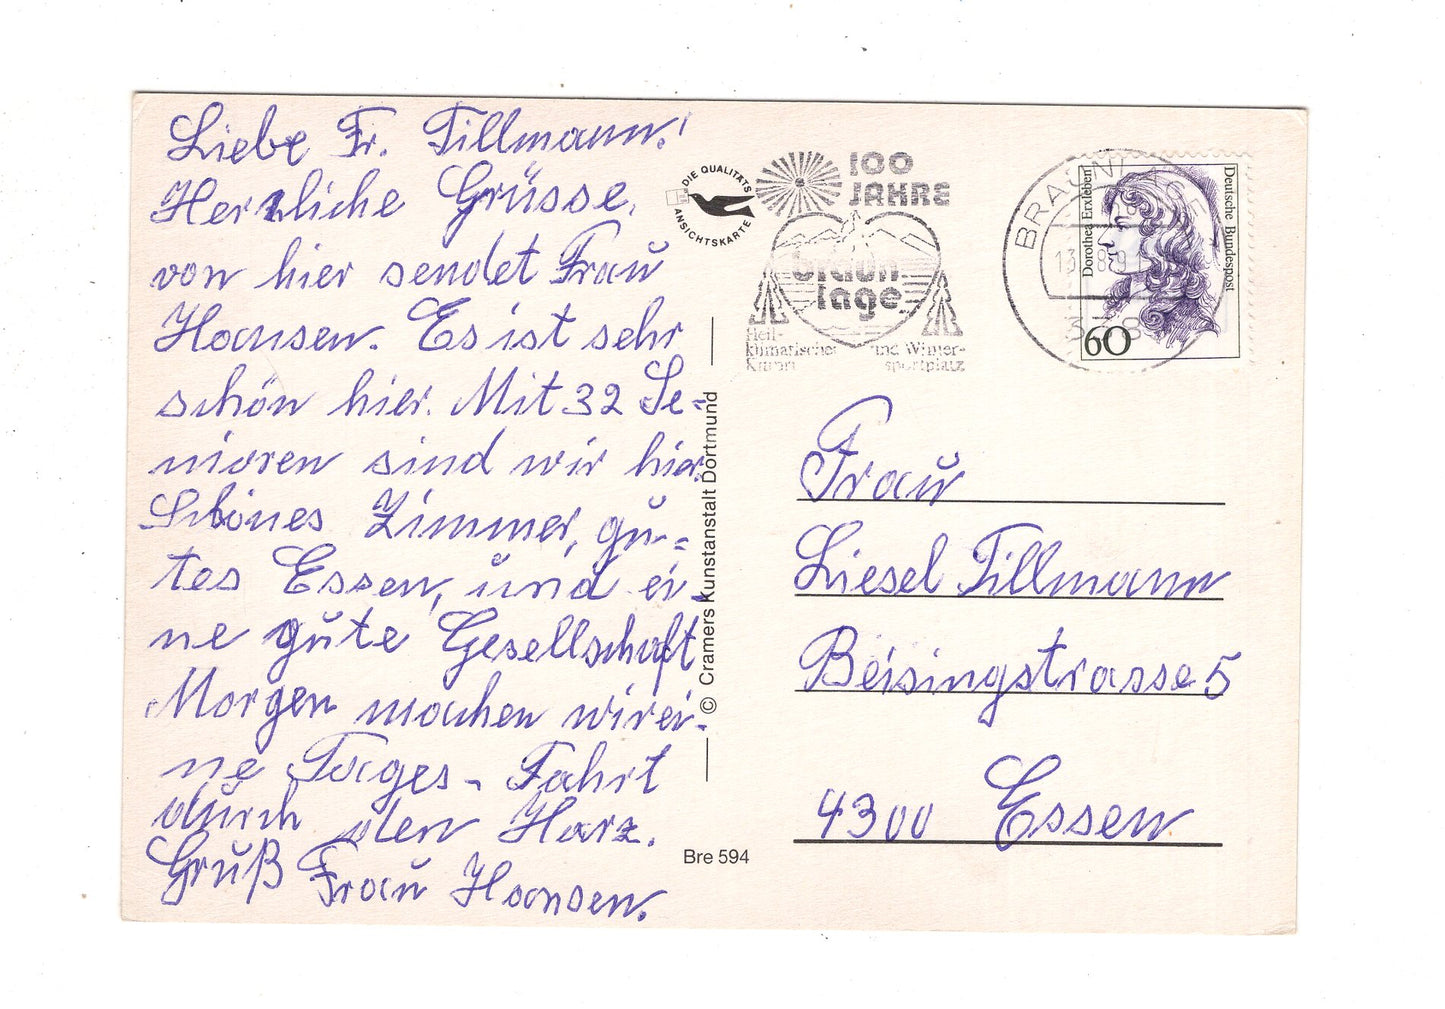 Liebe Fr. Tillmann!
Herzliche Grüsse,
von hier sendet Frau
Hansen. Es ist sehr
schön hier. Mit 32 Se-
nioren sind wir hier.
Schönes Zimmer, gu-
tes Essen, und ei-
ne gute Gesellschaft
Morgen machen wir ei-
ne Tages-Fahrt
durch den Harz.
Gruß Frau Hansen.
DIE QUALITÄTS
ANSICHTSKARTE
© Cramers Kunstanstalt Dortmund
Bre 594
100
JAHRE
braun
lage
Heil-
klimatischer und Winter-
Kurort sportplatz
BRAUNLAGE
Deutsche Bundespost
Dorothea Erxleben
60
Frau
Liesel Tillmann
Beisingstrasse 5
4300 Essen